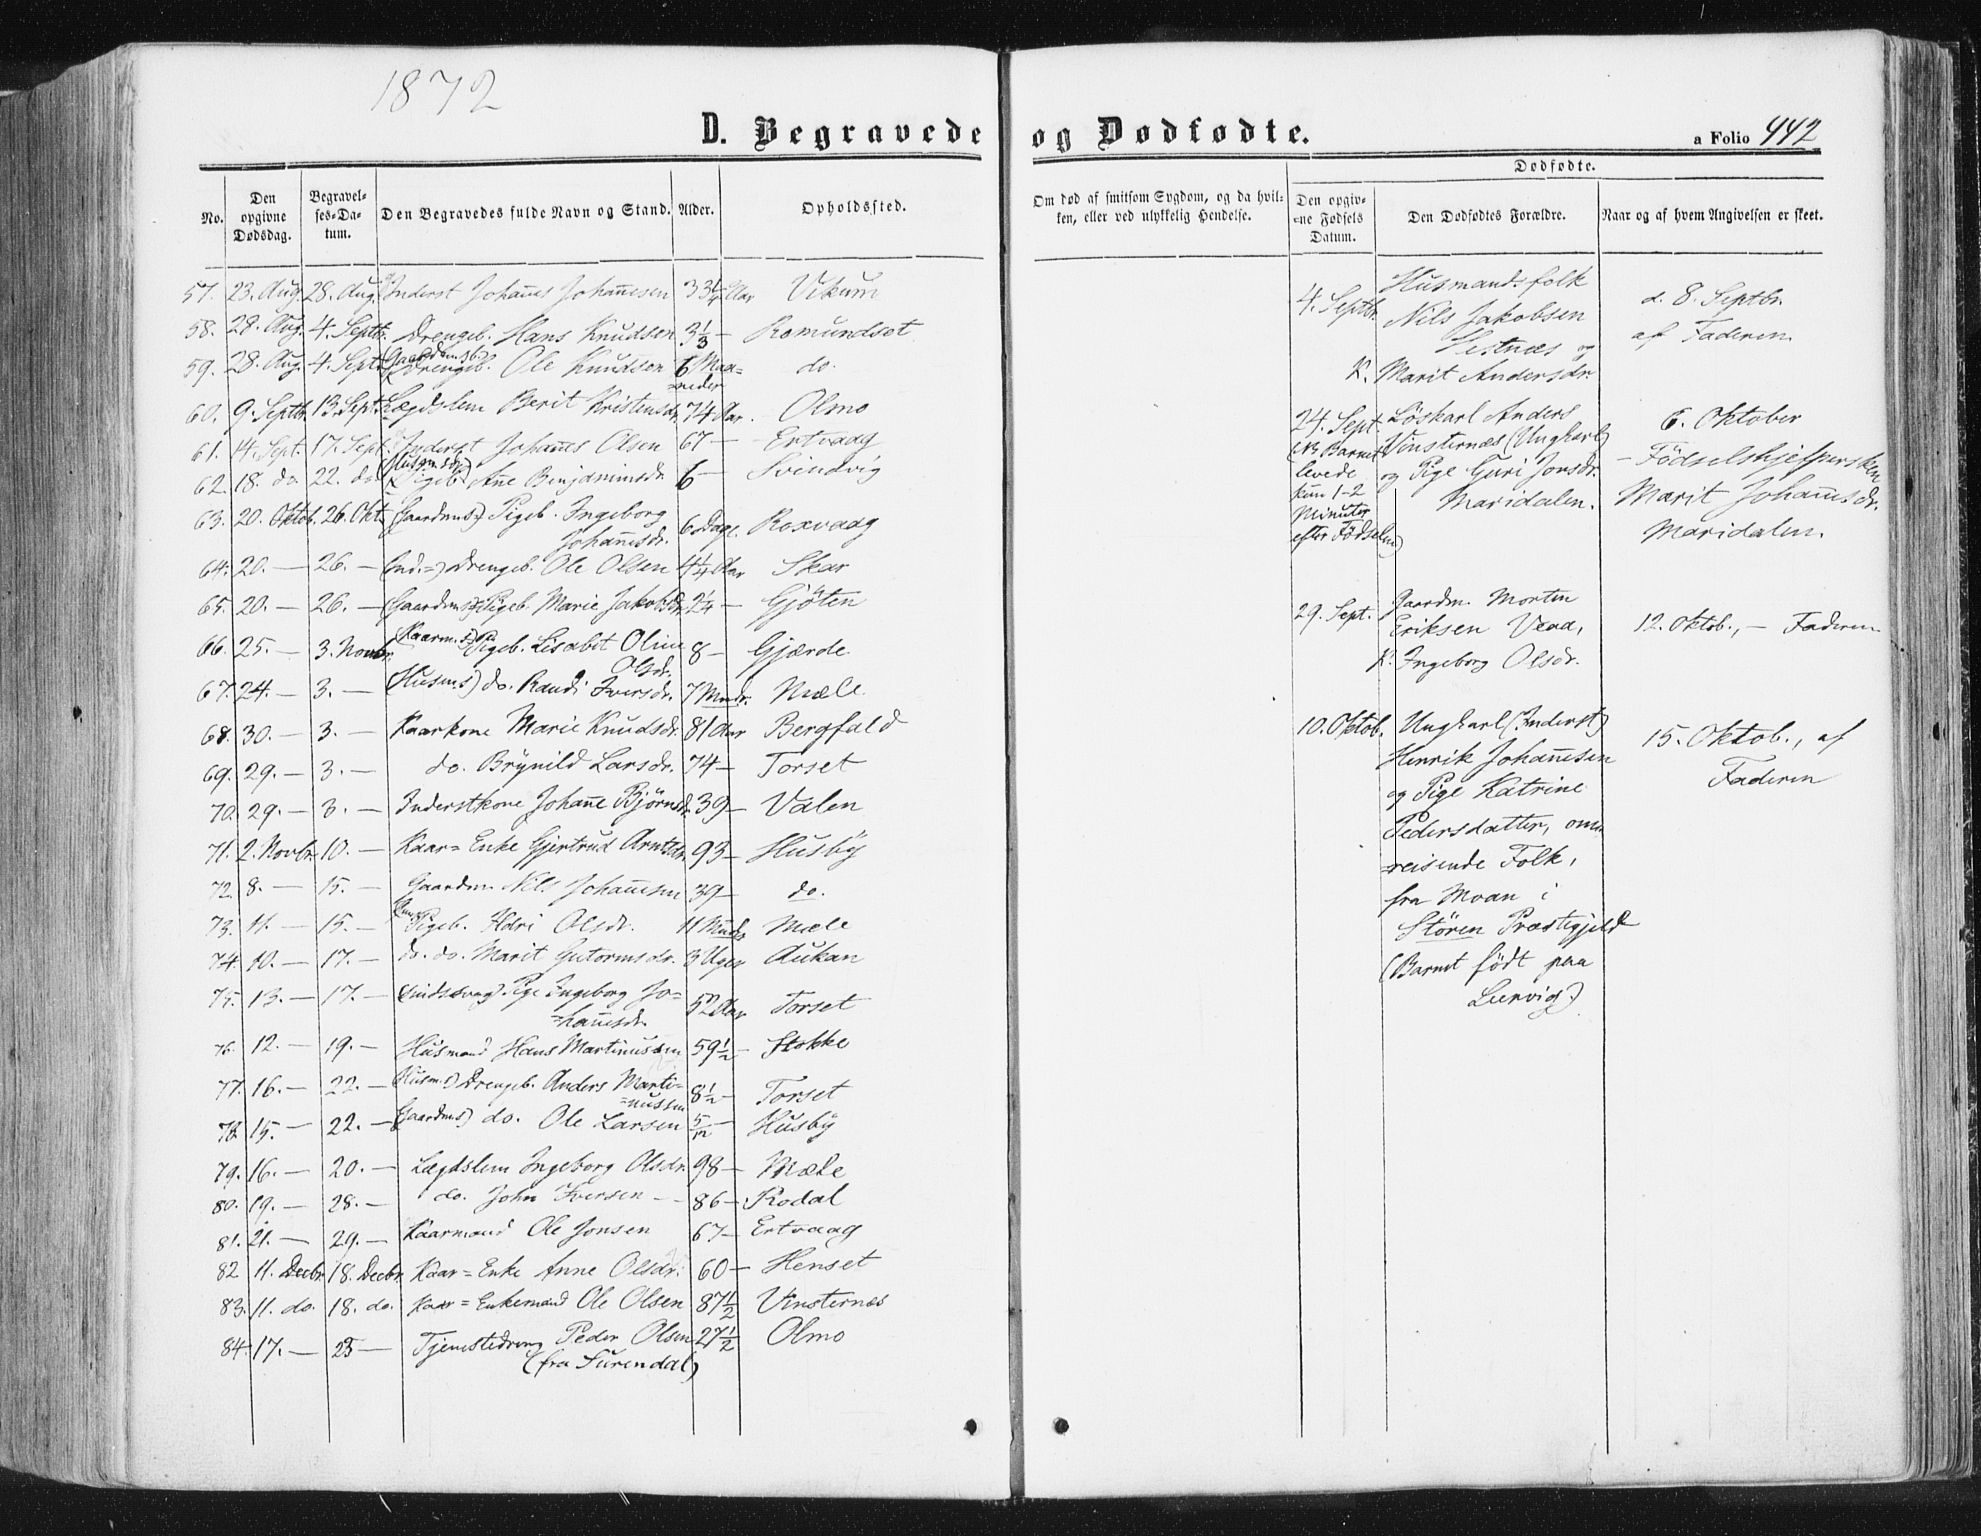 1872
D. Begravede og Dødfødte.
a Folio 442
No.
Den opgivne Dødsdag.
Begravelses-Datum.
Den Begravedes fulde Navn og Stand.
Alder.
Opholdssted.
Om død af smitsom Sygdom, og da hvilken, eller ved ulykkelig Hendelse.
Dødfødte.
Den opgivne Fødsels Datum.
Den Dødfødtes Forældre.
Naar og af hvem Angivelsen er skeet.
57. 23. Aug. 28. Aug. Inderst Johan̄es Johan̄esen 33¼ Aar Vikum
58. 28. Aug. 4. Septbr. Drengeb. Hans Knudsen 3⅓ — Romundset
59. 28. Aug. 4. Sept. (Gaardms.) Drengeb. Ole Knudsen 6 Maaneder do.
60. 9. Septbr. 13. Sept. Lægdslem Berit Kristensdr. 74 Aar. Olmo
61. 14. Sept. 17. Sept. Inderst Johan̄es Olsen 67 — Ertvaag
62. 18. do. 22. do. (Husmds.) Pigeb. An̄e Benjaminsdr. 6 — Svindvig
63. 20. Oktob. 26. Okt. (Gaardms.) Pigeb. Ingeborg
Johan̄esdr. 6 Dage. Roxvaag
64. 20. — 26. — (Ind.=) Drengeb. Ole Olsen 4¼ Aar Skar
65. 20. — 26. — (Gaardms.) Pigeb. Marie Jakobsdr. 2¼ — Gjöten
66. 25. — 3. Novbr. (Kaarm.s) Pigeb. Lisabet Oline
Olsdr. 8 — Gjærde
67. 24. — 3. — (Husms.) do. Randi Iversdr. 7 Mndr. Mæle
68. 30. — 3. — Kaarkone Marie Knudsdr. 81 Aar Bergfald
69. 29. — 3. — do. Brynild Larsdr. 74 — Torset
70. 29. — 3. — Inderstkone Johan̄e Björnsdr. 39 — Valen
71. 2. Novbr. 10. — Kaar=Enke Gjertrud Arntsdr. 93 — Husby
72. 8. — 15. — Gaardm. Nils Johan̄esen 39 — do.
73. 11. — 15. — Pigeb. Olsdr. 11 Mndr. Mæle
74. 10. — 17. — do. do. Marit Gutormsdr. 3 Uger Aukan
75. 13. — 17. — Pige Ingeborg Jo=
=han̄esdr. 52 Aar Torset
76. 12. — 19. — Husmand Hans Martinussen 59½ — Stokke
77. 16. — 22. — (Husm.s) Drengeb. Anders Marti=
=nussen 8½ — Torset
78. 15. — 22. — (Gaardms.) do. Ole Larsen 5/12 — Husby
79. 16. — 20. — Lægdslem Ingeborg Olsdr. 98 — Mæle
80. 19. — 28. — do. John Iversen — 86 — Rodal
81. 21. — 29. — Kaarmand Ole Jonsen 67 — Ertvaag
82. 11. Decbr. 18. Decbr. Kaar=Enke Anne Olsdr. 60 — Henset
83. 11. do. 18. do. Kaar=Enkemand Ole Olsen 87½ Vinsternæs
84. 17. — 23 — Tjenestedreng Peder Olsen 27½ Olmo
(fra Surendal)
4. Septbr. Husmandsfolk
Nils Jakobsen
Vestnæs og
K. Marit Andersdr.
d. 8. Septbr.
af Faderen.
24. Sept. (NB Barnet levede kun 1-2 Minuter efter Fødselen)
Löskarl Anders
Vinsternæs (Ungkarl)
og Pige Guri Jonsdr.
Maridalen.
6. Oktober
— Födselshjelpersken
Marit Johan̄esdr.
Maridalen.
29. Sept. Gaardm. Morten
Eriksen Vead,
K. Ingeborg Olsdr.
12. Oktob., — Faderen
10. Oktob. Ungkarl (Inderst)
Henrik Johan̄esen
og Pige Katrine
Pedersdatter, om=
=reisende Folk,
fra Moan i
Stören Præstegjeld
(Barnet födt paa
Lervig.)
15. Oktob., af
Faderen